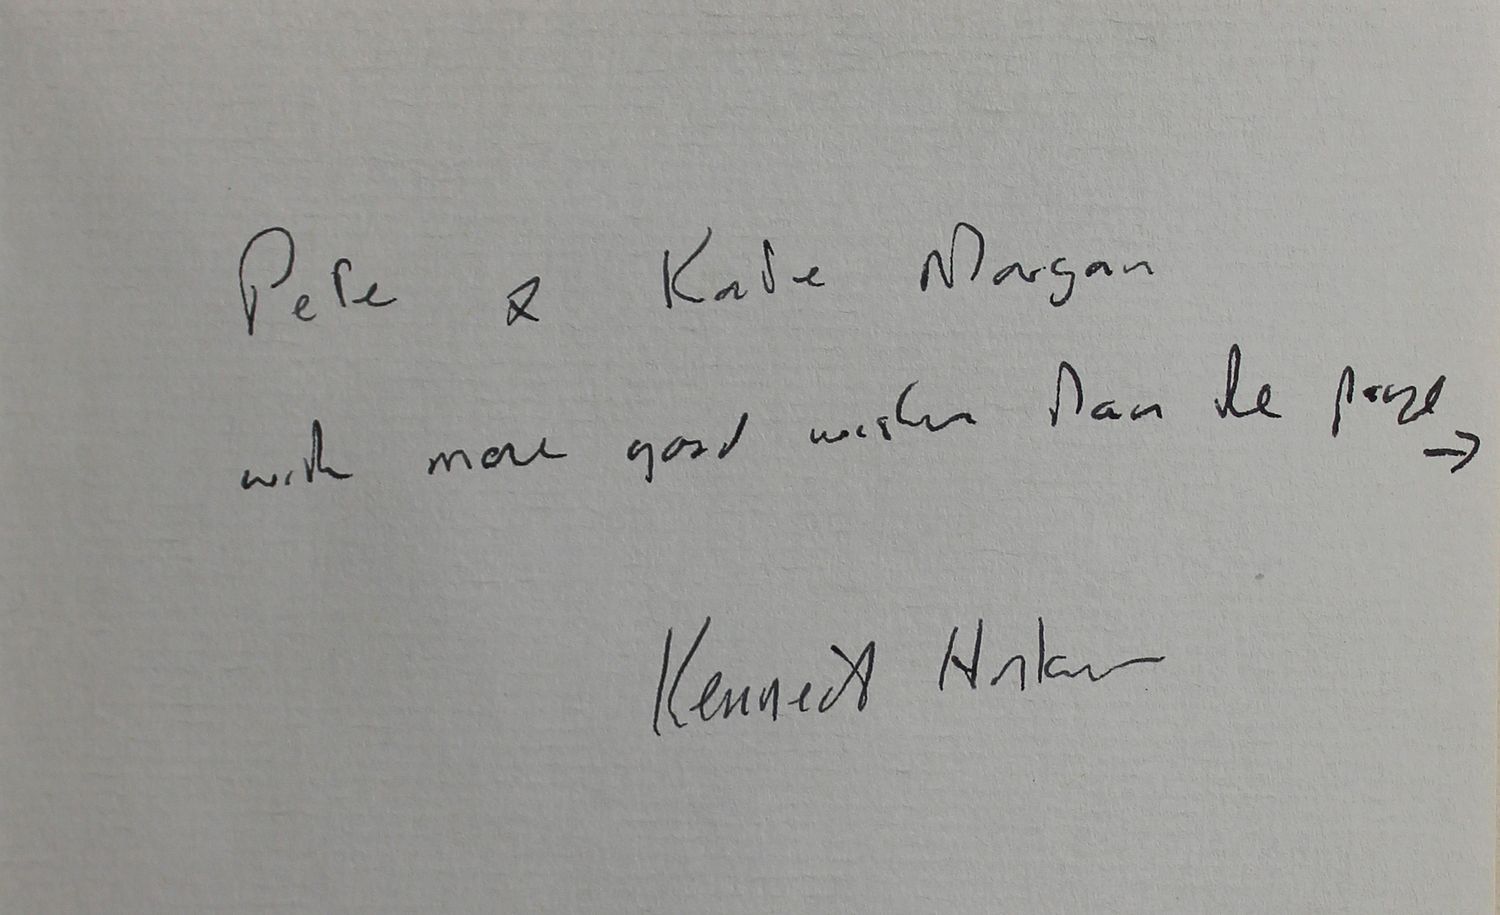 Pete & Kate Morgan
with more good wishes than the page
→
Kenneth